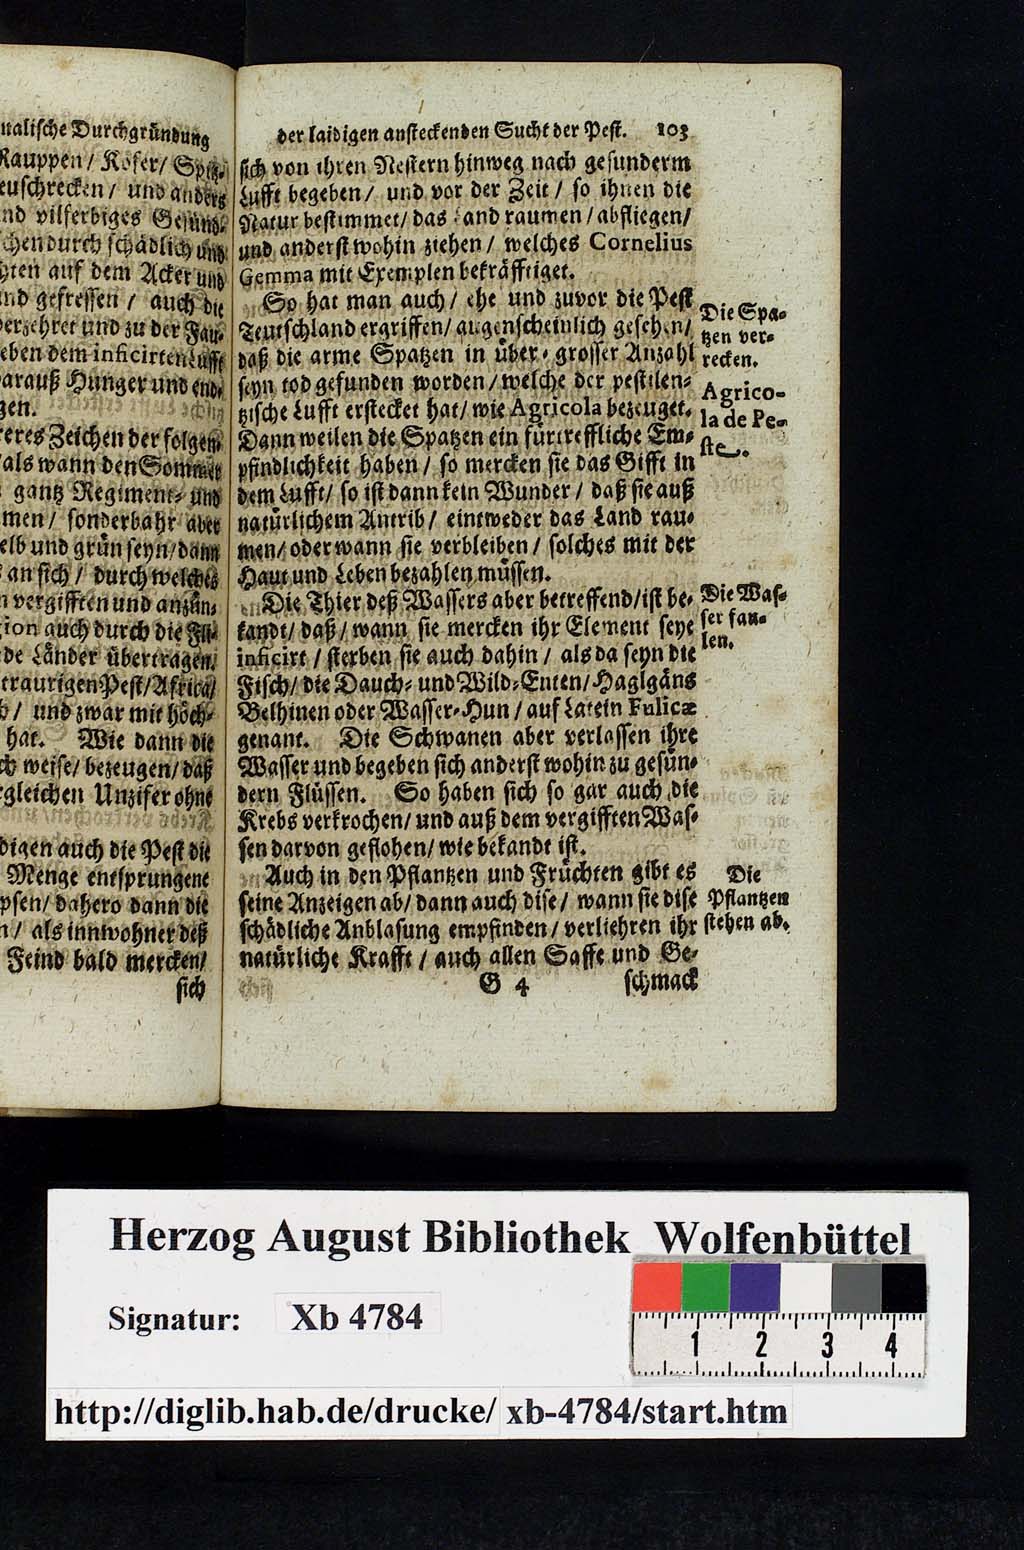 nalische Durchgründung
Rauppen / Köfer / Spitz-
euschrecken / und anders
nd vilferbiges Gesünd-
chen durch schädlich und
hten auf dem Acker und
nd gefressen / auch die
verzehret und zu der Fäu-
eben dem inficirten Lufft
arauß Hunger und end-
gen.
reres Zeichen der folgen-
/ als wann den Sommer
gantz Regiment- und
men / sonderbahr aber
elb und grün seyn / dann
s an sich / durch welches
n vergifften und anzün-
gion auch durch die Fli-
de Länder übertragen.
traurigen Pest / Africa/
b / und zwar mit höch-
hat. Wie dann die
ch weise / bezeugen / daß
rgleichen Unzifer ohne
digen auch die Pest die
Menge entsprungene
psen / dahero dann die
n / als innwohner deß
Feind bald mercken /
sich
der laidigen ansteckenden Sucht der Pest. 103
sich von ihren Nestern hinweg nach gesunderm
Lufft begeben / und vor der Zeit / so ihnen die
Natur bestimmet / das Land raumen / abfliegen /
und anderst wohin ziehen / welches Cornelius
Gemma mit Exemplen bekräfftiget.
So hat man auch / ehe und zuvor die Pest
Teutschland ergriffen / augenscheinlich gesehen /
daß die arme Spatzen in über-grosser Anzahl
seyn tod gefunden worden / welche der pestilen-
tzische Lufft erstecket hat / wie Agricola bezeuget.
Dann weilen die Spatzen ein fürtreffliche Em-
pfindlichkeit haben / so mercken sie das Gifft in
dem Lufft / so ist dann kein Wunder / daß sie auß
natürlichem Antrib / eintweder das Land rau-
men / oder wann sie verbleiben / solches mit der
Haut und Leben bezahlen müssen.
Die Thier deß Wassers aber betreffend / ist be-
kandt / daß / wann sie mercken ihr Element seye
inficirt / sterben sie auch dahin / als da seyn die
Fisch / die Dauch- und Wild-Enten / Haglgäns
Belhinen oder Wasser-Hun / auf Latein Fulicæ
genant. Die Schwanen aber verlassen ihre
Wasser und begeben sich anderst wohin zu gesün-
dern Flüssen. So haben sich so gar auch die
Krebs verkrochen / und auß dem vergifften Was-
sen darvon geflohen / wie bekandt ist.
Auch in den Pflantzen und Früchten gibt es
seine Anzeigen ab / dann auch dise / wann sie dise
schädliche Anblasung empfinden / verliehren ihr
natürliche Krafft / auch allen Safft und Ge-
G 4 schmack
Die Spa-
tzen ver-
recken.
Agrico-
la de Pe-
ste.
Die Was-
ser fau-
len.
Die
Pflantzen
stehen ab.
Herzog August Bibliothek Wolfenbüttel
Signatur: Xb 4784
1 2 3 4
http://diglib.hab.de/drucke/ xb-4784/start.htm